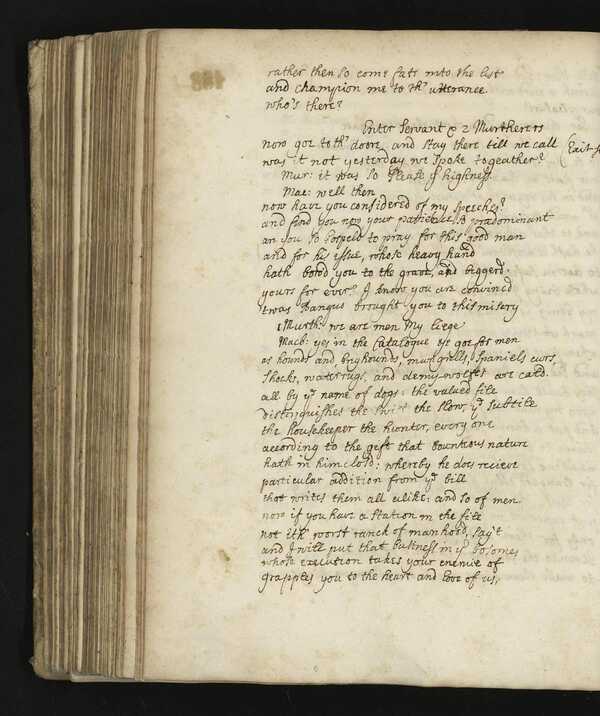 rather then so come fate into the list
and champion me to th' utterance
who's there?
Enter Servant & 2 Murtherers
now goe to th' doore, and stay there till we call
(Exit
was it not yesterday we spoke togeather?
Mur: it was so please yr highness.
Mac: well then
now have you considered of my speeches?
and find you now your patience so predominant
are you so Gospeld to pray for this good man
and for his issue, whose heavy hand
hath bowd you to the grave, and biggerd
yours for ever? I know you are convinced
'twas Banquo brought you to this misery
1 Murth: we are men My liege
Macb: yes in the Catalogue ye goe for men
as hounds and greyhounds, mungrells, Spaniels curs,
Shocks, waterrugs, and demy-wolfes are cald
all by ye name of dogs: the valued file
distinguishes the swift the slow, ye subtile
the housekeeper the hunter, every one
according to the gift that bounteous nature
hath in him closd: whereby he does recieve
particular addition from ye bill
that writes them all alike: and so of men
now if you have a station in the file
not ith' worst ranck of manhood, say't
and I will put that business in yr bosomes
whose execution takes your enemie of
grapples you to the heart and love of us,